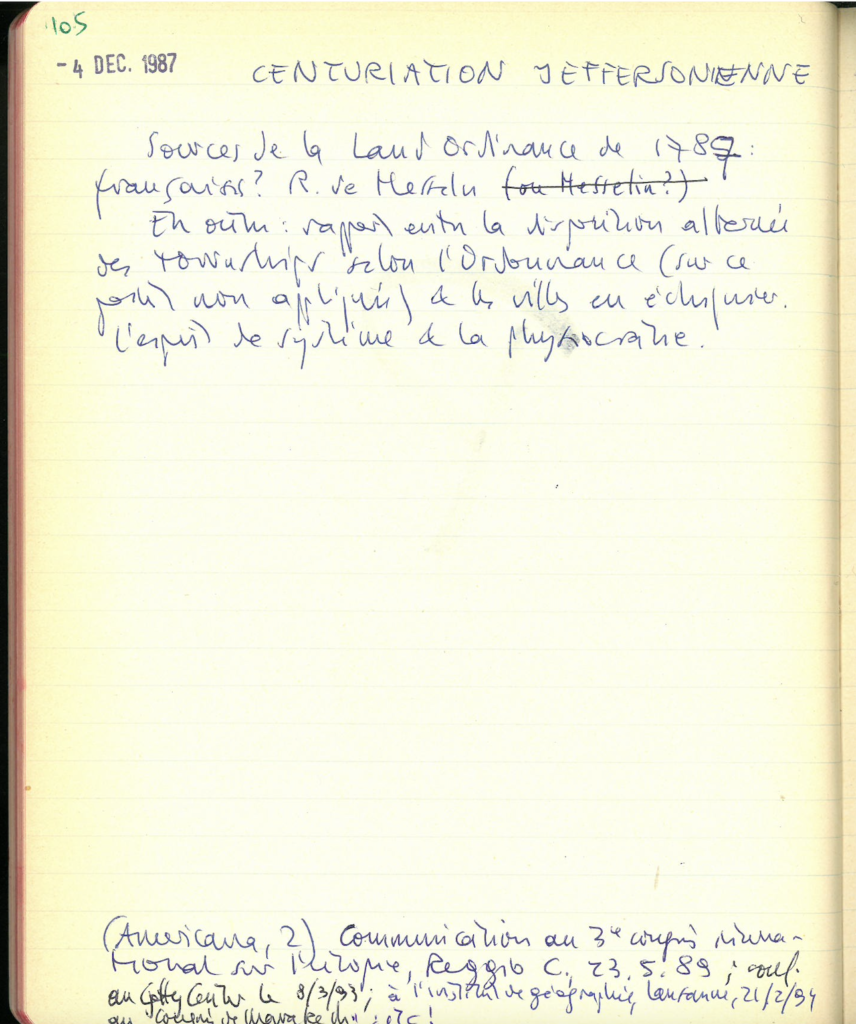 105
- 4 DEC. 1987
CENTURIATION JEFFERSONIENNE
Sources de la Land Ordinance de 1787 :
françaises ? R. de Hesseln (ou Hesselin ?)
En outre : rapport entre la disposition alternée
des townships selon l'Ordonnance (sur ce
point non appliquée) & les villes en échiquier.
L'esprit de système & la physiocratie.
(Americana, 2) Communication au 3e congrès interna-
tional sur l'utopie, Reggio C., 23.5.89 ; conf.
au Getty Center le 8/3/93 ; à l'institut de géographie, Lausanne, 21/2/94
au "congrès de Marrakech" ; etc !